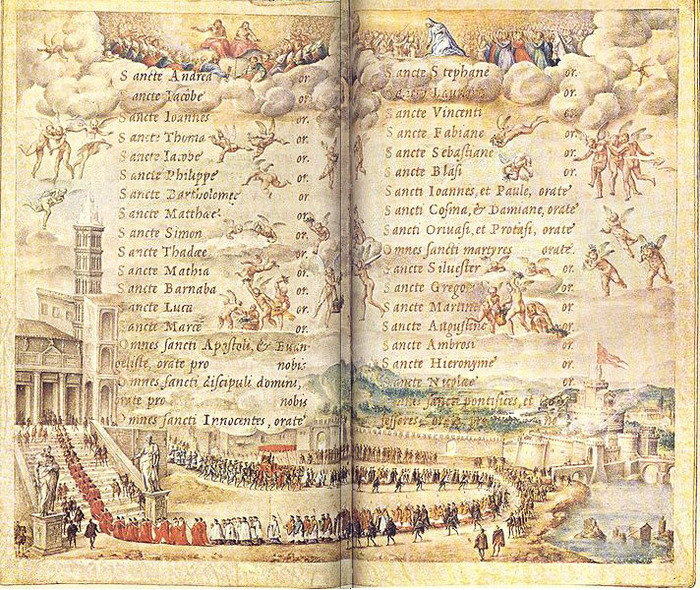 Sancte Andrea or.
Sancte Iacobe or.
Sancte Ioannes or.
Sancte Thoma or.
Sancte Iacobe or.
Sancte Philippe or.
Sancte Bartholomee or.
Sancte Matthae or.
Sancte Simon or.
Sancte Thadæe or.
Sancte Mathia or.
Sancte Barnaba or.
Sancte Luca or.
Sancte Marce or.
Omnes sancti Apostoli, & Euan-
geliste, orate pro nobis
Omnes sancti discipuli domini,
orate pro nobis
Omnes sancti Innocentes, orate
Sancte Stephane or.
Sancte Laurenti or.
Sancte Vincenti or.
Sancte Fabiane or.
Sancte Sebastiane or.
Sancte Blasi or.
Sancti Ioannes, et Paule, orate
Sancti Cosma, & Damiane, orate
Sancti Oruasi, et Protasi, orate
Omnes sancti martyres orate.
Sancte Siluester or.
Sancte Gregori or.
Sancte Martine or.
Sancte Augustine or.
Sancte Ambrosi or.
Sancte Hieronyme or.
Sancte Nicolae or.
Omnes sancti pontifices, et